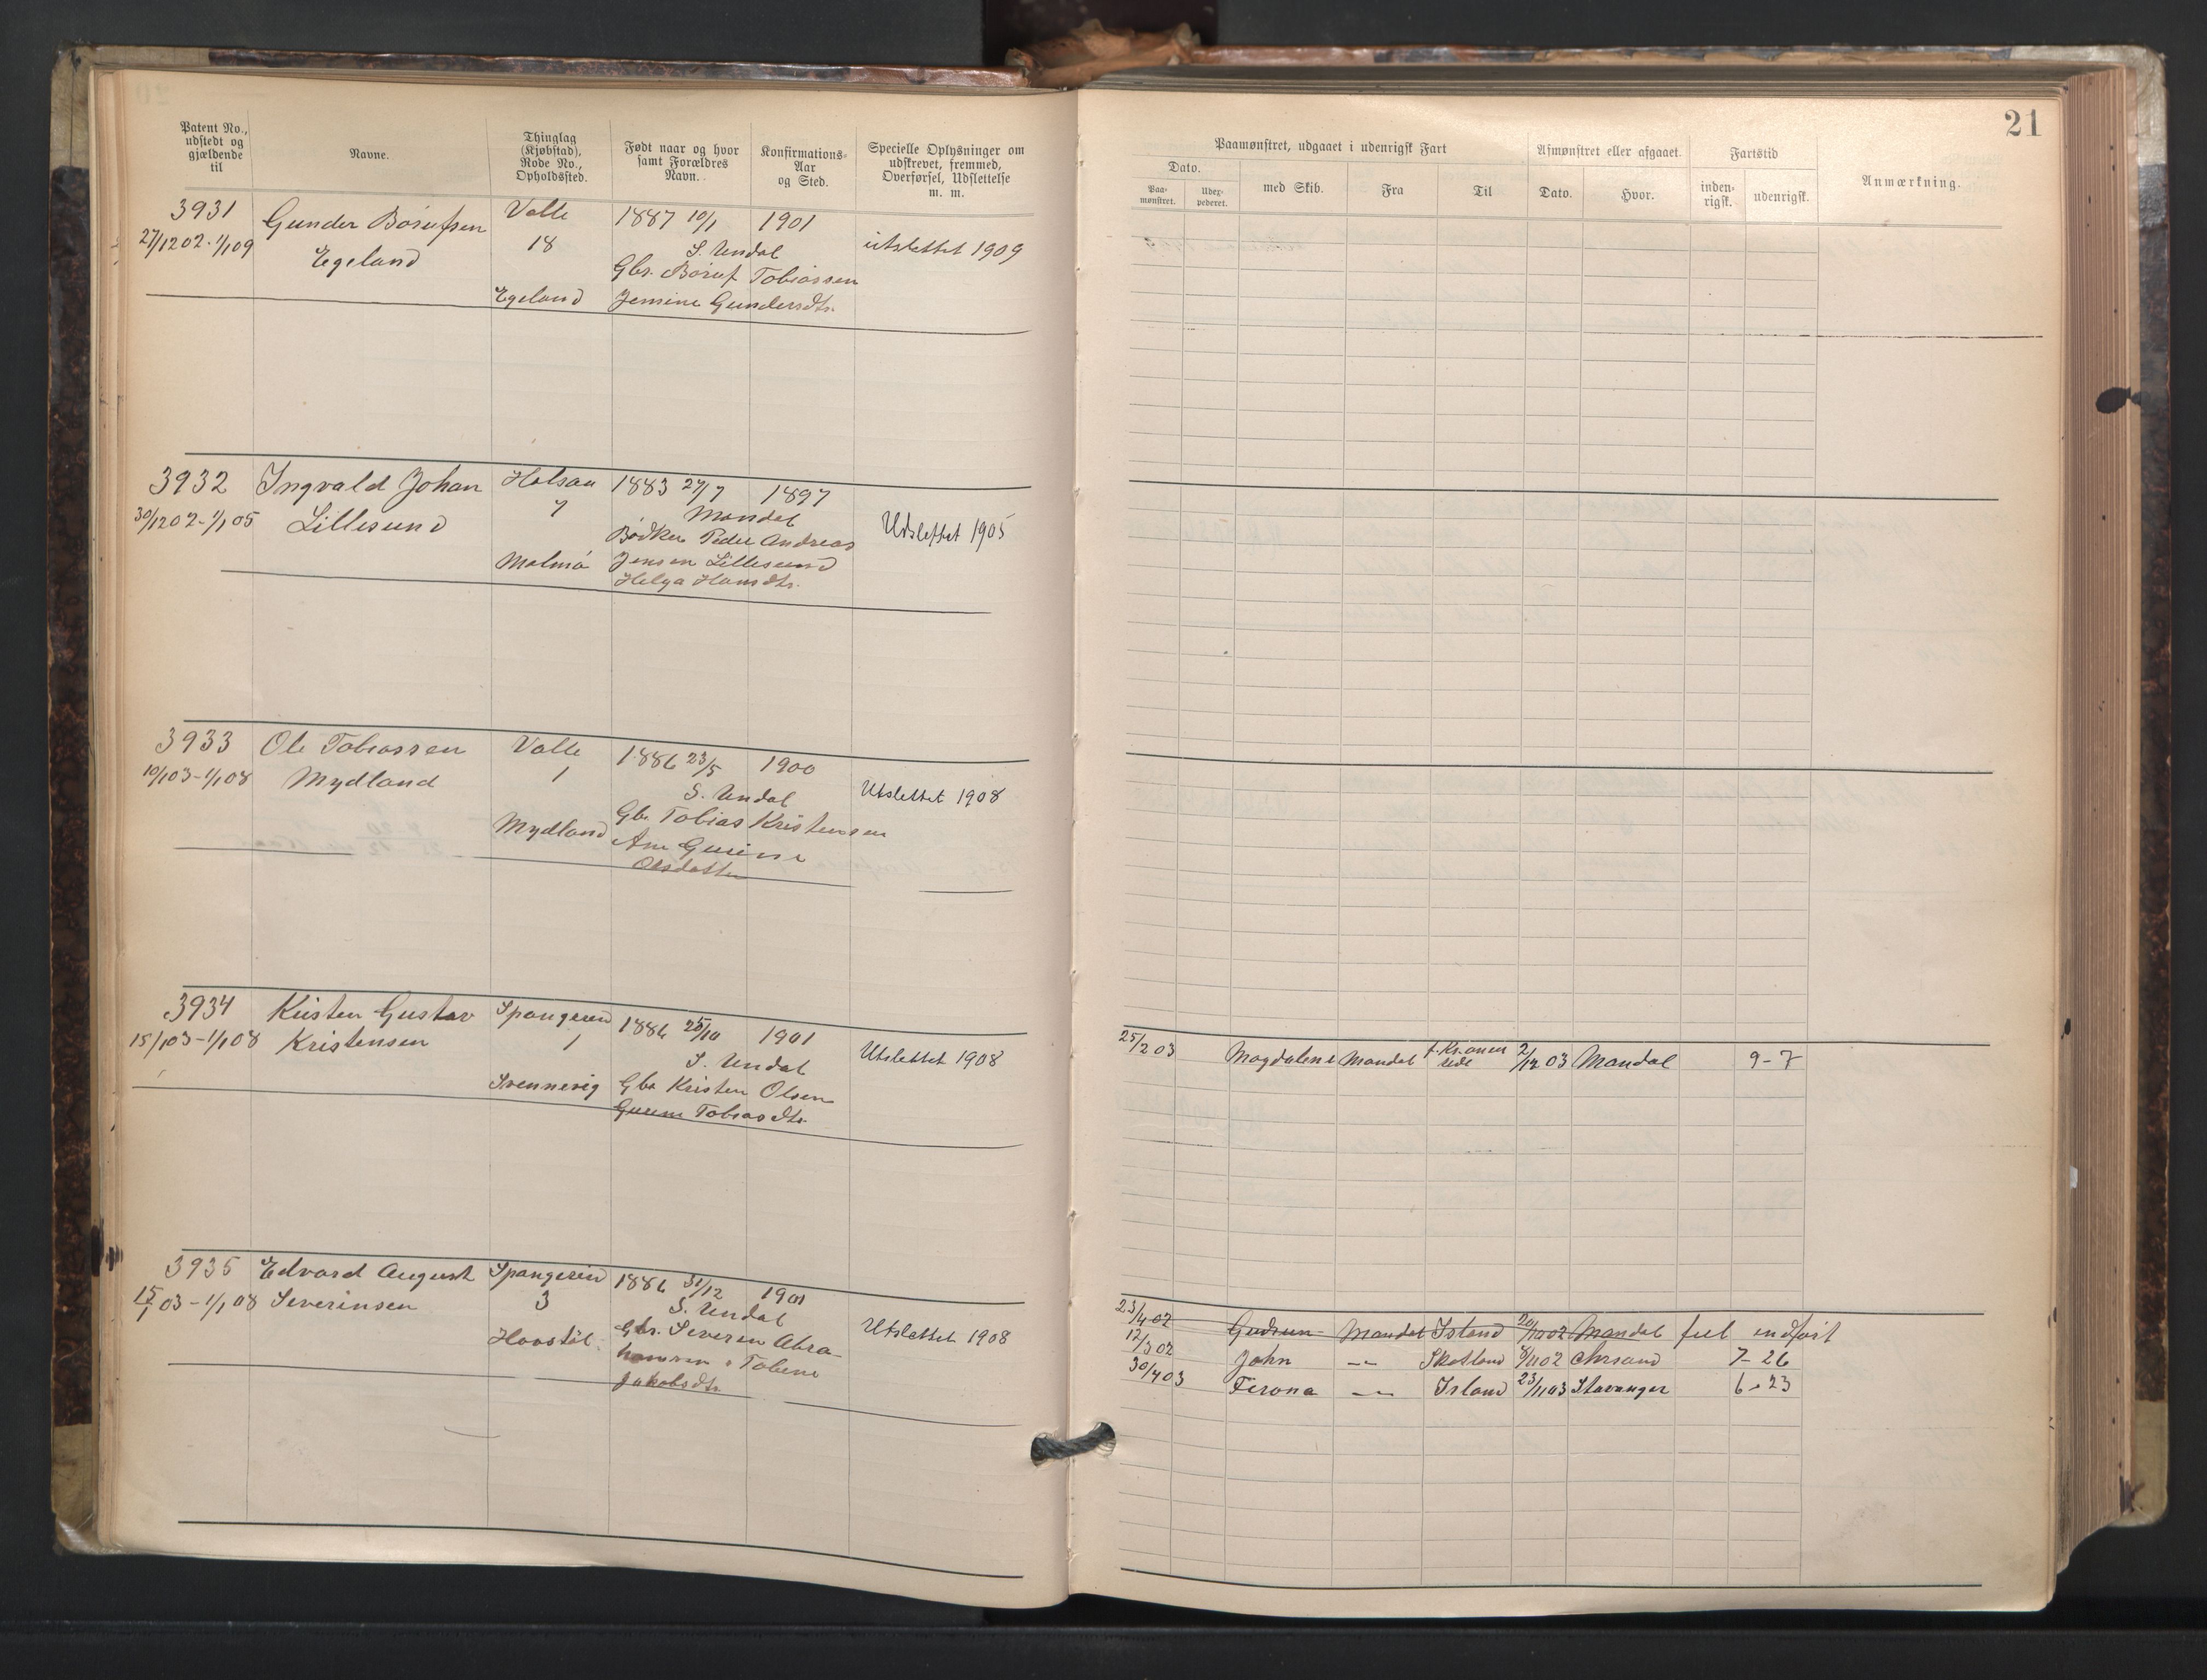 21
Patent No., udstedt og gjældende til
Navne.
Thinglag (Kjøbstad), Rode No., Opholdssted.
Født naar og hvor samt Forældres Navn.
Konfirmations-Aar og Sted.
Specielle Oplysninger om udskrevet, fremmed, Overførsel, Udslettelse m. m.
Paamønstret, udgaaet i udenrigsk Fart
Afmønstret eller afgaaet.
Fartstid
Anmærkning.
Dato.
Paa-mønstret.
Uder-pederet.
med Skib.
Fra
Til
Dato.
Hvor.
inden-rigsk.
udenrigsk.
3931 Gunder Borufsen Valle 1887 10/1 1901
27/12 02 - 1/1 09 Egeland 18 S. Undal utslettet 1909
Gbr. Boruf Tobiassen
Egeland Jemine Gundersdtr.
3932 Ingvald Johan Halsaa 1883 27/7 1897
30/12 02 - 1/1 05 Lillesund 7 Mandal Udslettet 1905
Bødker Peder Andreas
Malmø Jensen Lillesund
Helga Hansdtr.
3933 Ole Tobiassen Valle 1886 23/5 1900
10/1 03 - 1/1 08 Mydland 1 S. Undal Utslettet 1908
Gbr. Tobias Kristensen
Mydland Ane Gurine
Olsdatter
3934 Kristen Gustav Spangereid 1886 25/10 1901
15/1 03 - 1/1 08 Kristensen 1 S. Undal Utslettet 1908
Svennevig Gbr Kristen Olsen
Gurine Tobiasdtr.
25/2 03 Magdalene Mandal f. Kr. anen
rede 2/12 03 Mandal 9 - 7
3935 Edvard August Spangereid 1886 31/12 1901
15/1 03 - 1/1 08 Severinsen 3 S. Undal Utslettet 1908
Gbr. Severin Abra-
hamsen o Tobine
Jakobsdtr.
23/4 02 Gudrun Mandal Island 20/10 02 Mandal feil indført
12/3 02 John -"- Skotland 8/11 02 Chrsand 7 - 26
30/4 03 Ferona -"- Island 23/11 03 Stavanger 6 - 23